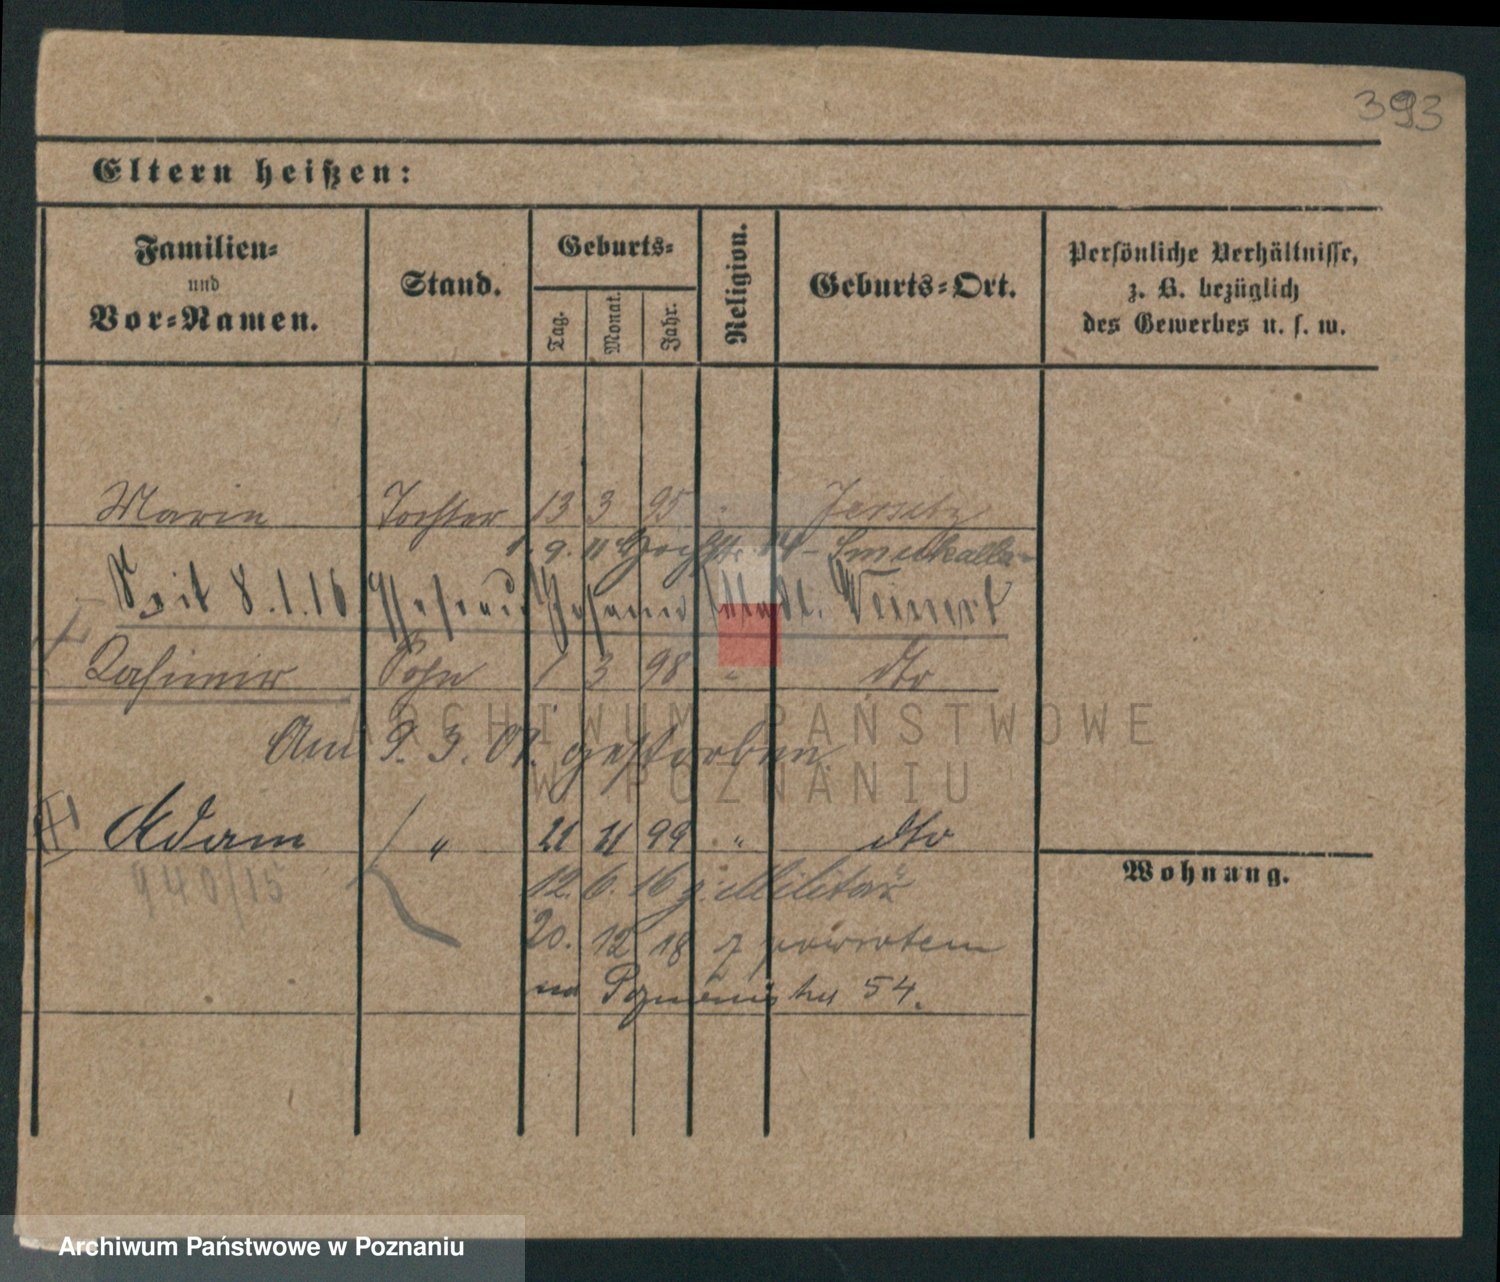 393
Eltern heißen:
Familien=
und
Vor=Namen.
Stand.
Geburts=
Tag.
Monat.
Jahr.
Religion.
Geburts=Ort.
Persönliche Verhältnisse,
z. B. bezüglich
des Gewerbes u. s. w.
Marie Tochter 13 3 95 " Jersitz
1. 9. 11
Seit 8.1.16 Ehefrau Weinert
Casimir Sohn 1 3 98 " dto
Am 9. 3. 01. gestorben
Adam " 21 11 99 " dto
940/15
12. 6. 16 z. Militär
20. 12 18 z powrotem
54.
Wohnung.
ARCHIWUM PAŃSTWOWE
W POZNANIU
Archiwum Państwowe w Poznaniu